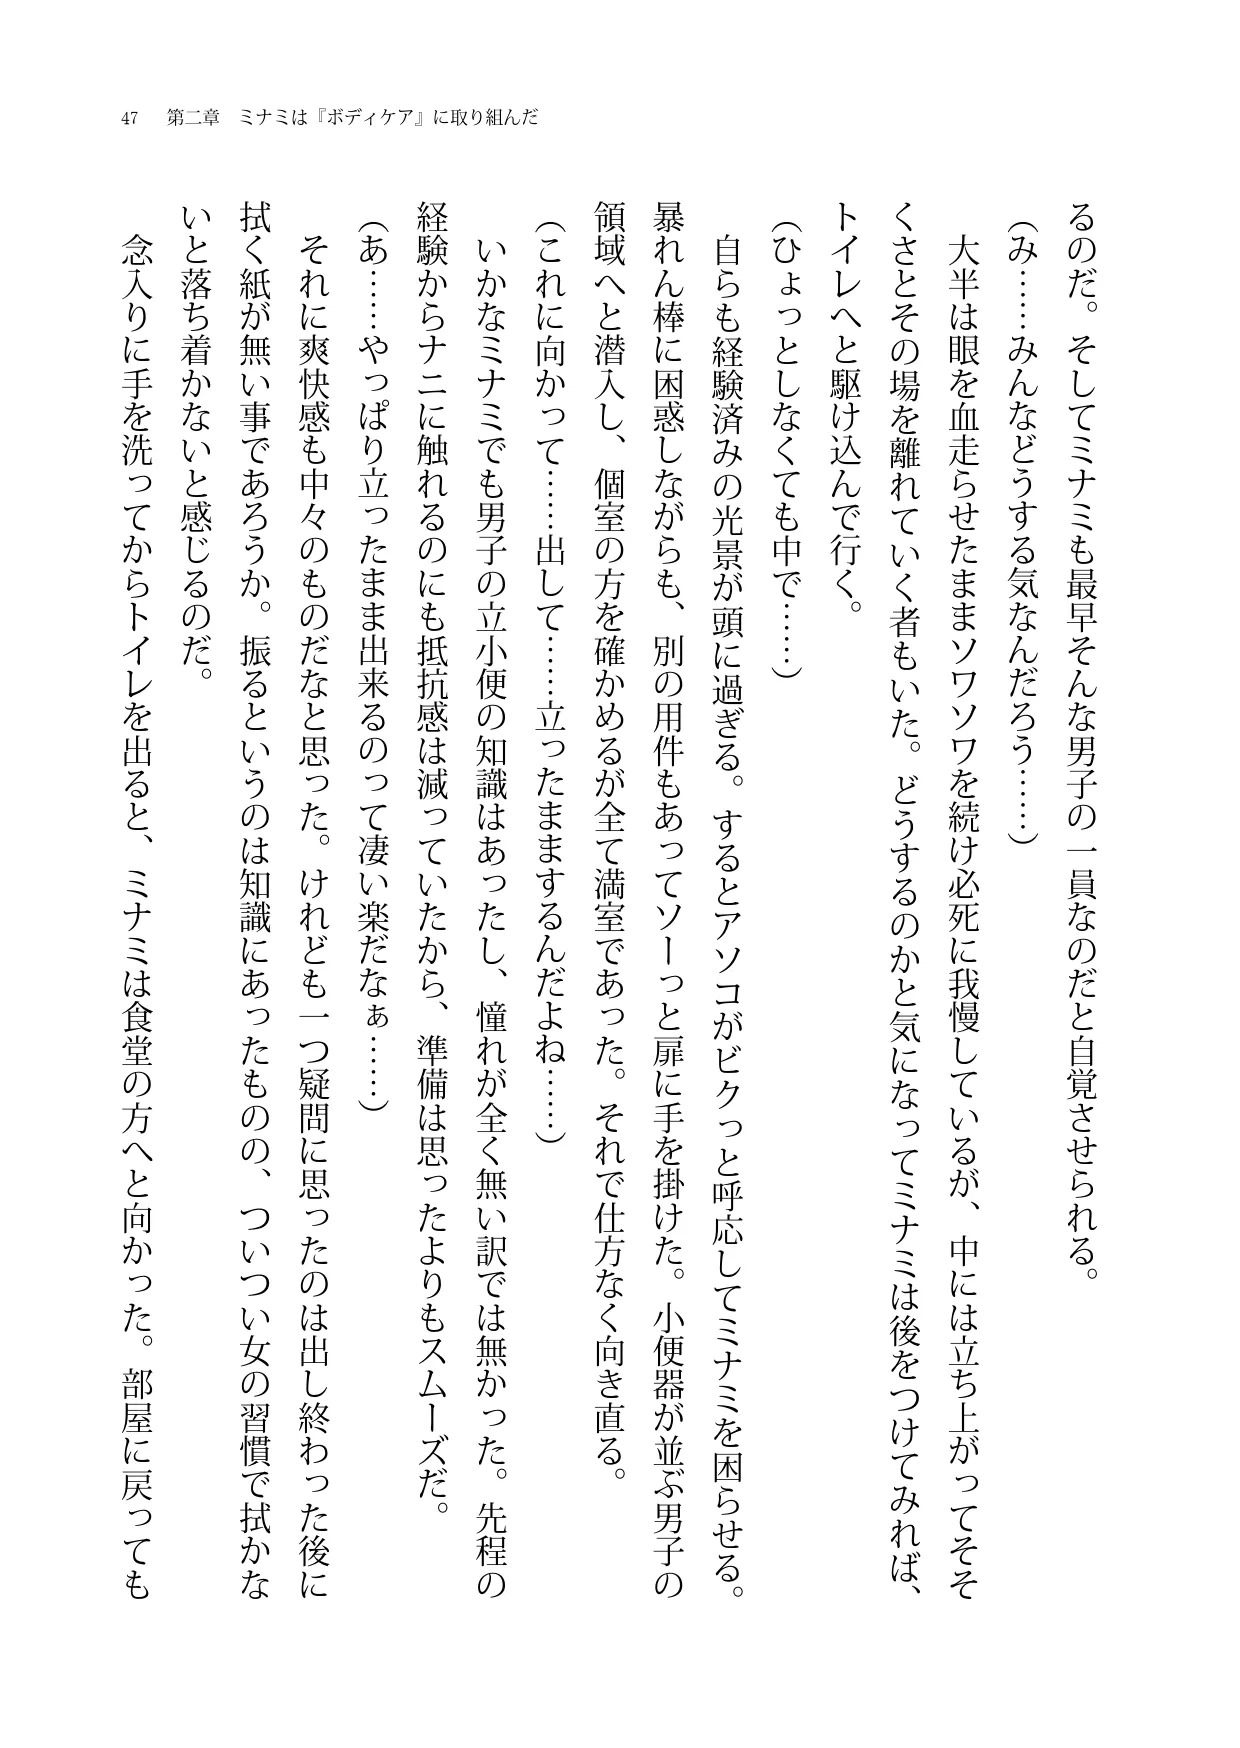 47　第二章　ミナミは『ボディケア』に取り組んだ
るのだ。そしてミナミも最早そんな男子の一員なのだと自覚させられる。
（み……みんなどうする気なんだろう……）
　大半は眼を血走らせたままソワソワを続け必死に我慢しているが、中には立ち上がってそそ
くさとその場を離れていく者もいた。どうするのかと気になってミナミは後をつけてみれば、
トイレへと駆け込んで行く。
（ひょっとしなくても中で……）
　自らも経験済みの光景が頭に過ぎる。するとアソコがビクっと呼応してミナミを困らせる。
暴れん棒に困惑しながらも、別の用件もあってソーっと扉に手を掛けた。小便器が並ぶ男子の
領域へと潜入し、個室の方を確かめるが全て満室であった。それで仕方なく向き直る。
（これに向かって……出して……立ったままするんだよね……）
　いかなミナミでも男子の立小便の知識はあったし、憧れが全く無い訳では無かった。先程の
経験からナニに触れるのにも抵抗感は減っていたから、準備は思ったよりもスムーズだ。
（あ……やっぱり立ったまま出来るのって凄い楽だなぁ……）
　それに爽快感も中々のものだなと思った。けれども一つ疑問に思ったのは出し終わった後に
拭く紙が無い事であろうか。振るというのは知識にあったものの、ついつい女の習慣で拭かな
いと落ち着かないと感じるのだ。
　念入りに手を洗ってからトイレを出ると、ミナミは食堂の方へと向かった。部屋に戻っても